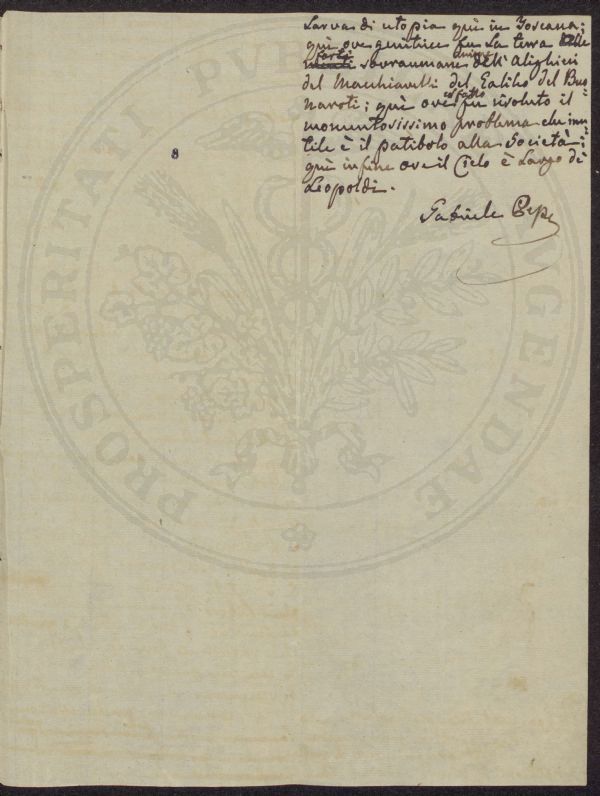 Larva di utopia quì in Toscana;
quì ove genitrice fu la terra delle
anime
sovraumane dell'Alighieri
del Macchiavelli del Galileo del Buo
col fatto
naroti; quì ove fu risoluto il
momentosissimo problema che inu
tile è il patibolo alla Società;
quì infine ove il Cielo è Largo di
Leopoldi.
Gabriele Pepe
8
PROSPERITAT
VGENDAE